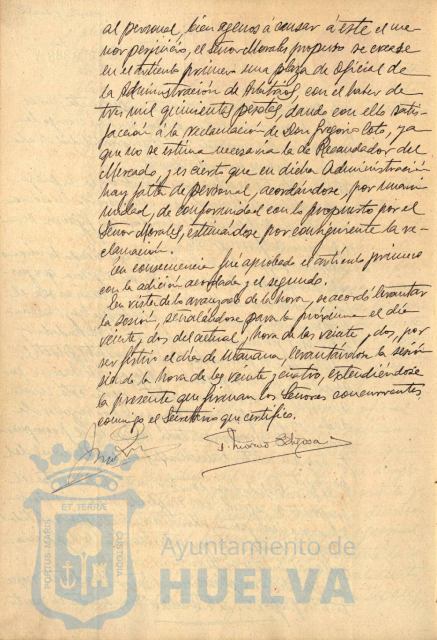 al personal, bien agenos á causar á este el me-
nor perjuicio, el Señor Morales propuso se crease
en el artículo primero una plaza de Oficial de
la Administración de Arbitrios con el haber de
tres mil quinientas pesetas, dando con ello satis-
facción á la reclamación de Don Gregorio Cots, ya
que no se estima necesaria la de Recaudador del
Mercado, y es cierto que en dicha Administración
hay falta de personal, acordándose, por unani-
midad, de conformidad con lo propuesto por el
Señor Morales, estimándose por consiguiente la re-
clamación.
En consecuencia fué aprobado el artículo primero
con la adición acordada y el segundo.
En vista de lo avanzado de la hora, se acordó levantar
la sesión, señalándose para la próxima el día
veinte y dos del actual, hora de las veinte y dos, por
ser festivo el día de Mañana, levantándose la sesión
siendo la hora de las veinte y cuatro, extendiéndose
la presente que firman los Señores concurrentes
conmigo el Secretario que certifico.
PORTUS MARIS
ET TERRÆ
CUSTODIA
Ayuntamiento de
HUELVA